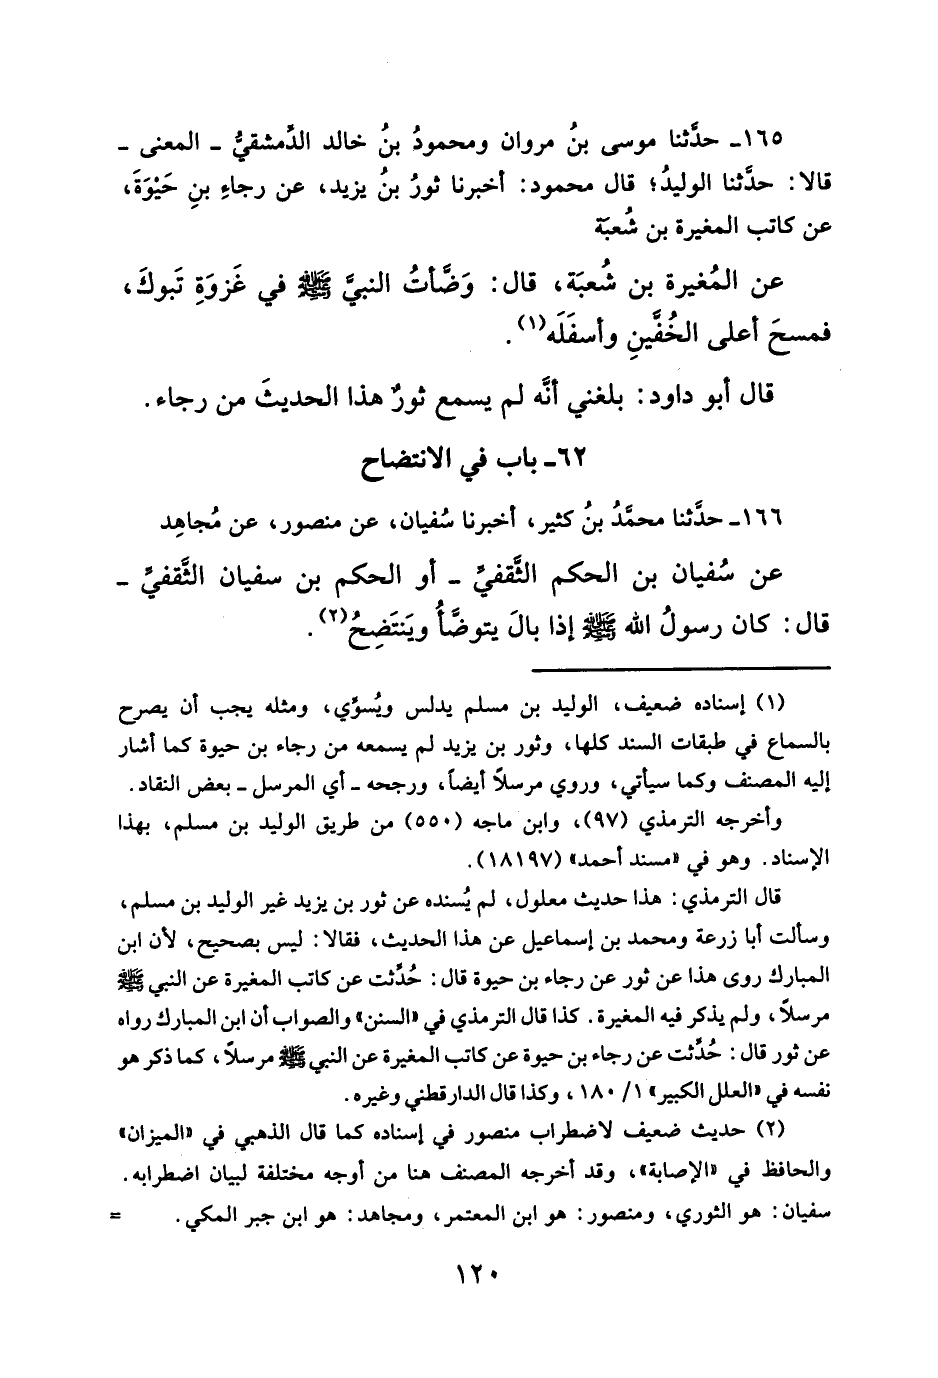 ١٦٥ـ حدَّثنا موسى بنُ مروان ومحمودُ بنُ خالد الدِّمشقيُّ ـ المعنى ـ
قالا: حدَّثنا الوليدُ؛ قال محمود: أخبرنا ثورُ بنُ يزيد، عن رجاءِ بنِ حَيْوَةَ،
عن كاتب المغيرة بن شُعبَة
عن المُغيرة بن شُعبَة، قال: وَضَّأتُ النبيَّ ﷺ في غَزوَةِ تَبوكَ،
فمسحَ أعلى الخُفَّينِ وأسفَلَه(١).
قال أبو داود: بلغني أنَّه لم يسمع ثورٌ هذا الحديثَ من رجاء.
٦٢ـ باب في الانتضاح
١٦٦ـ حدَّثنا محمَّدُ بنُ كثير، أخبرنا سُفيان، عن منصور، عن مُجاهِد
عن سُفيان بن الحكم الثَّقفيِّ ـ أو الحكم بن سفيان الثَّقفيِّ ـ
قال: كان رسولُ الله ﷺ إذا بالَ يتوضَّأُ ويَنتَضِحُ(٢).
(١) إسناده ضعيف، الوليد بن مسلم يدلس ويُسوِّي، ومثله يجب أن يصرح
بالسماع في طبقات السند كلها، وثور بن يزيد لم يسمعه من رجاء بن حيوة كما أشار
إليه المصنف وكما سيأتي، وروي مرسلاً أيضاً، ورجحه ـ أي المرسل ـ بعض النقاد.
وأخرجه الترمذي (٩٧)، وابن ماجه (٥٥٠) من طريق الوليد بن مسلم، بهذا
الإسناد. وهو في «مسند أحمد» (١٨١٩٧).
قال الترمذي: هذا حديث معلول، لم يُسنده عن ثور بن يزيد غير الوليد بن مسلم،
وسألت أبا زرعة ومحمد بن إسماعيل عن هذا الحديث، فقالا: ليس بصحيح، لأن ابن
المبارك روى هذا عن ثور عن رجاء بن حيوة قال: حُدِّثت عن كاتب المغيرة عن النبي ﷺ
مرسلاً، ولم يذكر فيه المغيرة. كذا قال الترمذي في «السنن» والصواب أن ابن المبارك رواه
عن ثور قال: حُدِّثت عن رجاء بن حيوة عن كاتب المغيرة عن النبي ﷺ مرسلاً، كما ذكر هو
نفسه في «العلل الكبير» ١/ ١٨٠، وكذا قال الدارقطني وغيره.
(٢) حديث ضعيف لاضطراب منصور في إسناده كما قال الذهبي في «الميزان»
والحافظ في «الإصابة»، وقد أخرجه المصنف هنا من أوجه مختلفة لبيان اضطرابه.
سفيان: هو الثوري، ومنصور: هو ابن المعتمر، ومجاهد: هو ابن جبر المكي. =
١٢٠